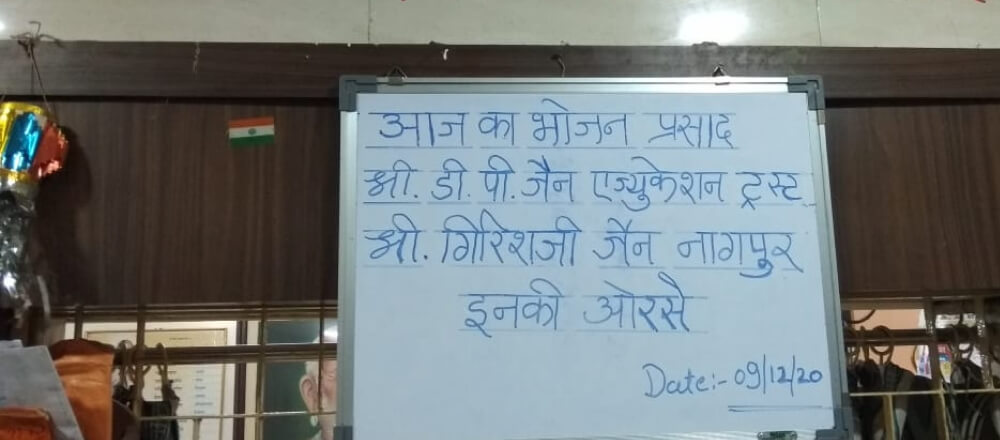 आज का भोजन प्रसाद
श्री. डी. पी. जैन एज्युकेशन ट्रस्ट
श्री. गिरिशजी जैन नागपुर
इनकी ओरसे
Date:- 09/12/20